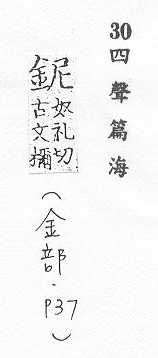 30四聲篇海
鈮
奴礼切
古文檷
(金部．P37)